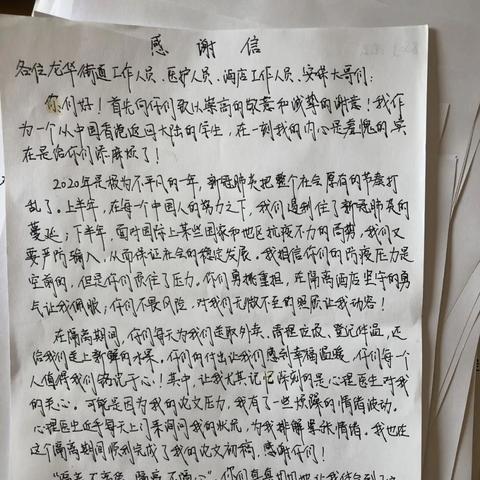 感谢信
各位龙华街道工作人员、医护人员、酒店工作人员、安保大哥们：
你们好！首先向你们致以崇高的敬意和诚挚的谢意！我作
为一个从中国香港返回大陆的学生，在一刻我的内心是羞愧的，实
在是给你们添麻烦了！
2020年是极为不平凡的一年，新冠肺炎把整个社会原有的节奏打
乱了。上半年，在每一个中国人的努力之下，我们遏制住了新冠肺炎的
蔓延；下半年，面对国际上某些国家和地区抗疫不力的局势，我们又
要严防输入，从而保证社会的稳定发展。我相信你们的防疫压力是
空前的，但是你们顶住了压力。你们勇挑重担，在隔离酒店坚守的勇
气让我佩服；你们不畏风险，对我们无微不至的照顾让我动容！
在隔离期间，你们每天为我们走取外卖、清理垃圾、登记体温，还
给我们送上新鲜的水果。你们的付出让我们感到幸福温暖，你们每一个
人值得我们铭记于心！其中，让我尤其记忆深刻的是心理医生对我
的关心。可能是因为我的论文压力，我有了一些烦躁的情绪波动。
心理医生近乎每天上门来询问我的状况，为我排解紧张情绪。我也在
这个隔离期间顺利完成了我的论文初稿，感谢你们！